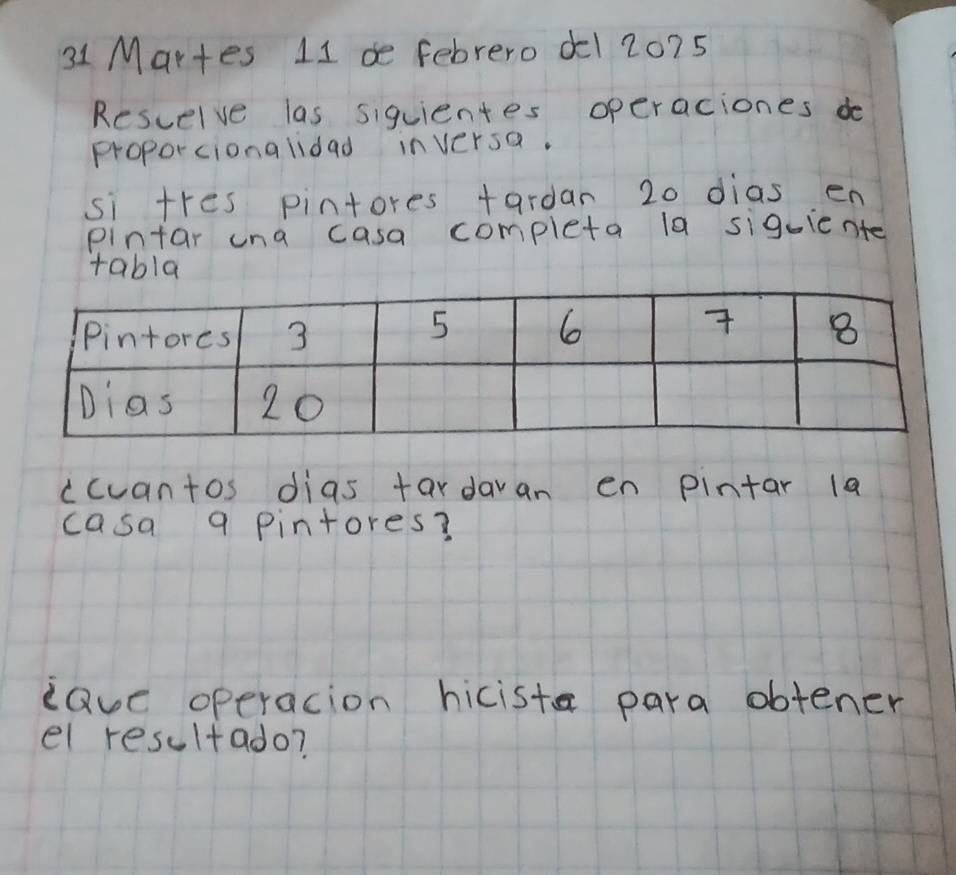 31 Martes 11 de febrero del 2025
Rescelve las siguientes operaciones de
proporcionalidad inversa.
si tres pintores tardan 20 dias en
pintar una casa completa la siguiente
tabla
Pintores 3 5 6 7 8
Dias 20
¿cuantos dias tardaran en pintar la
casa 9 pintores?
¿Que operacion hiciste para obtener
el resultado?